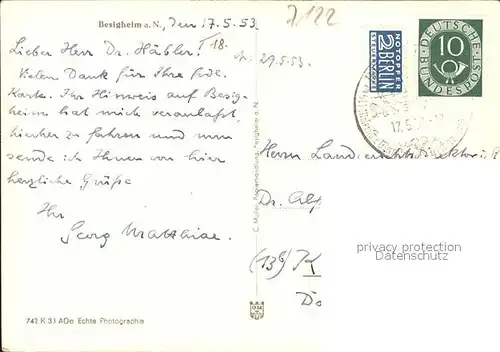 Besigheim a. N., den 17.5.53
7122
Lieber Herr Dr. Häbler!
T 18.
29.5.53.
Vielen Dank für Ihre frdl.
Karte. Ihr Hinweis auf Besig-
heim hat mich veranlaßt,
hierher zu fahren und nun
sende ich Ihnen von hier
herzliche Grüße
Ihr
Georg Matthiae.
742 K 33 ADei Echte Photographie
C. Müller, Papierhandlung, Besigheim a. N.
NOTOPFER
2 BERLIN
STEUERMARKE
DEUTSCHE
BUNDESPOST
10
17.5.
Herrn Landgerichtsdirektor i. R.
Dr. Alf
(13b) K
privacy protection
Datenschutz